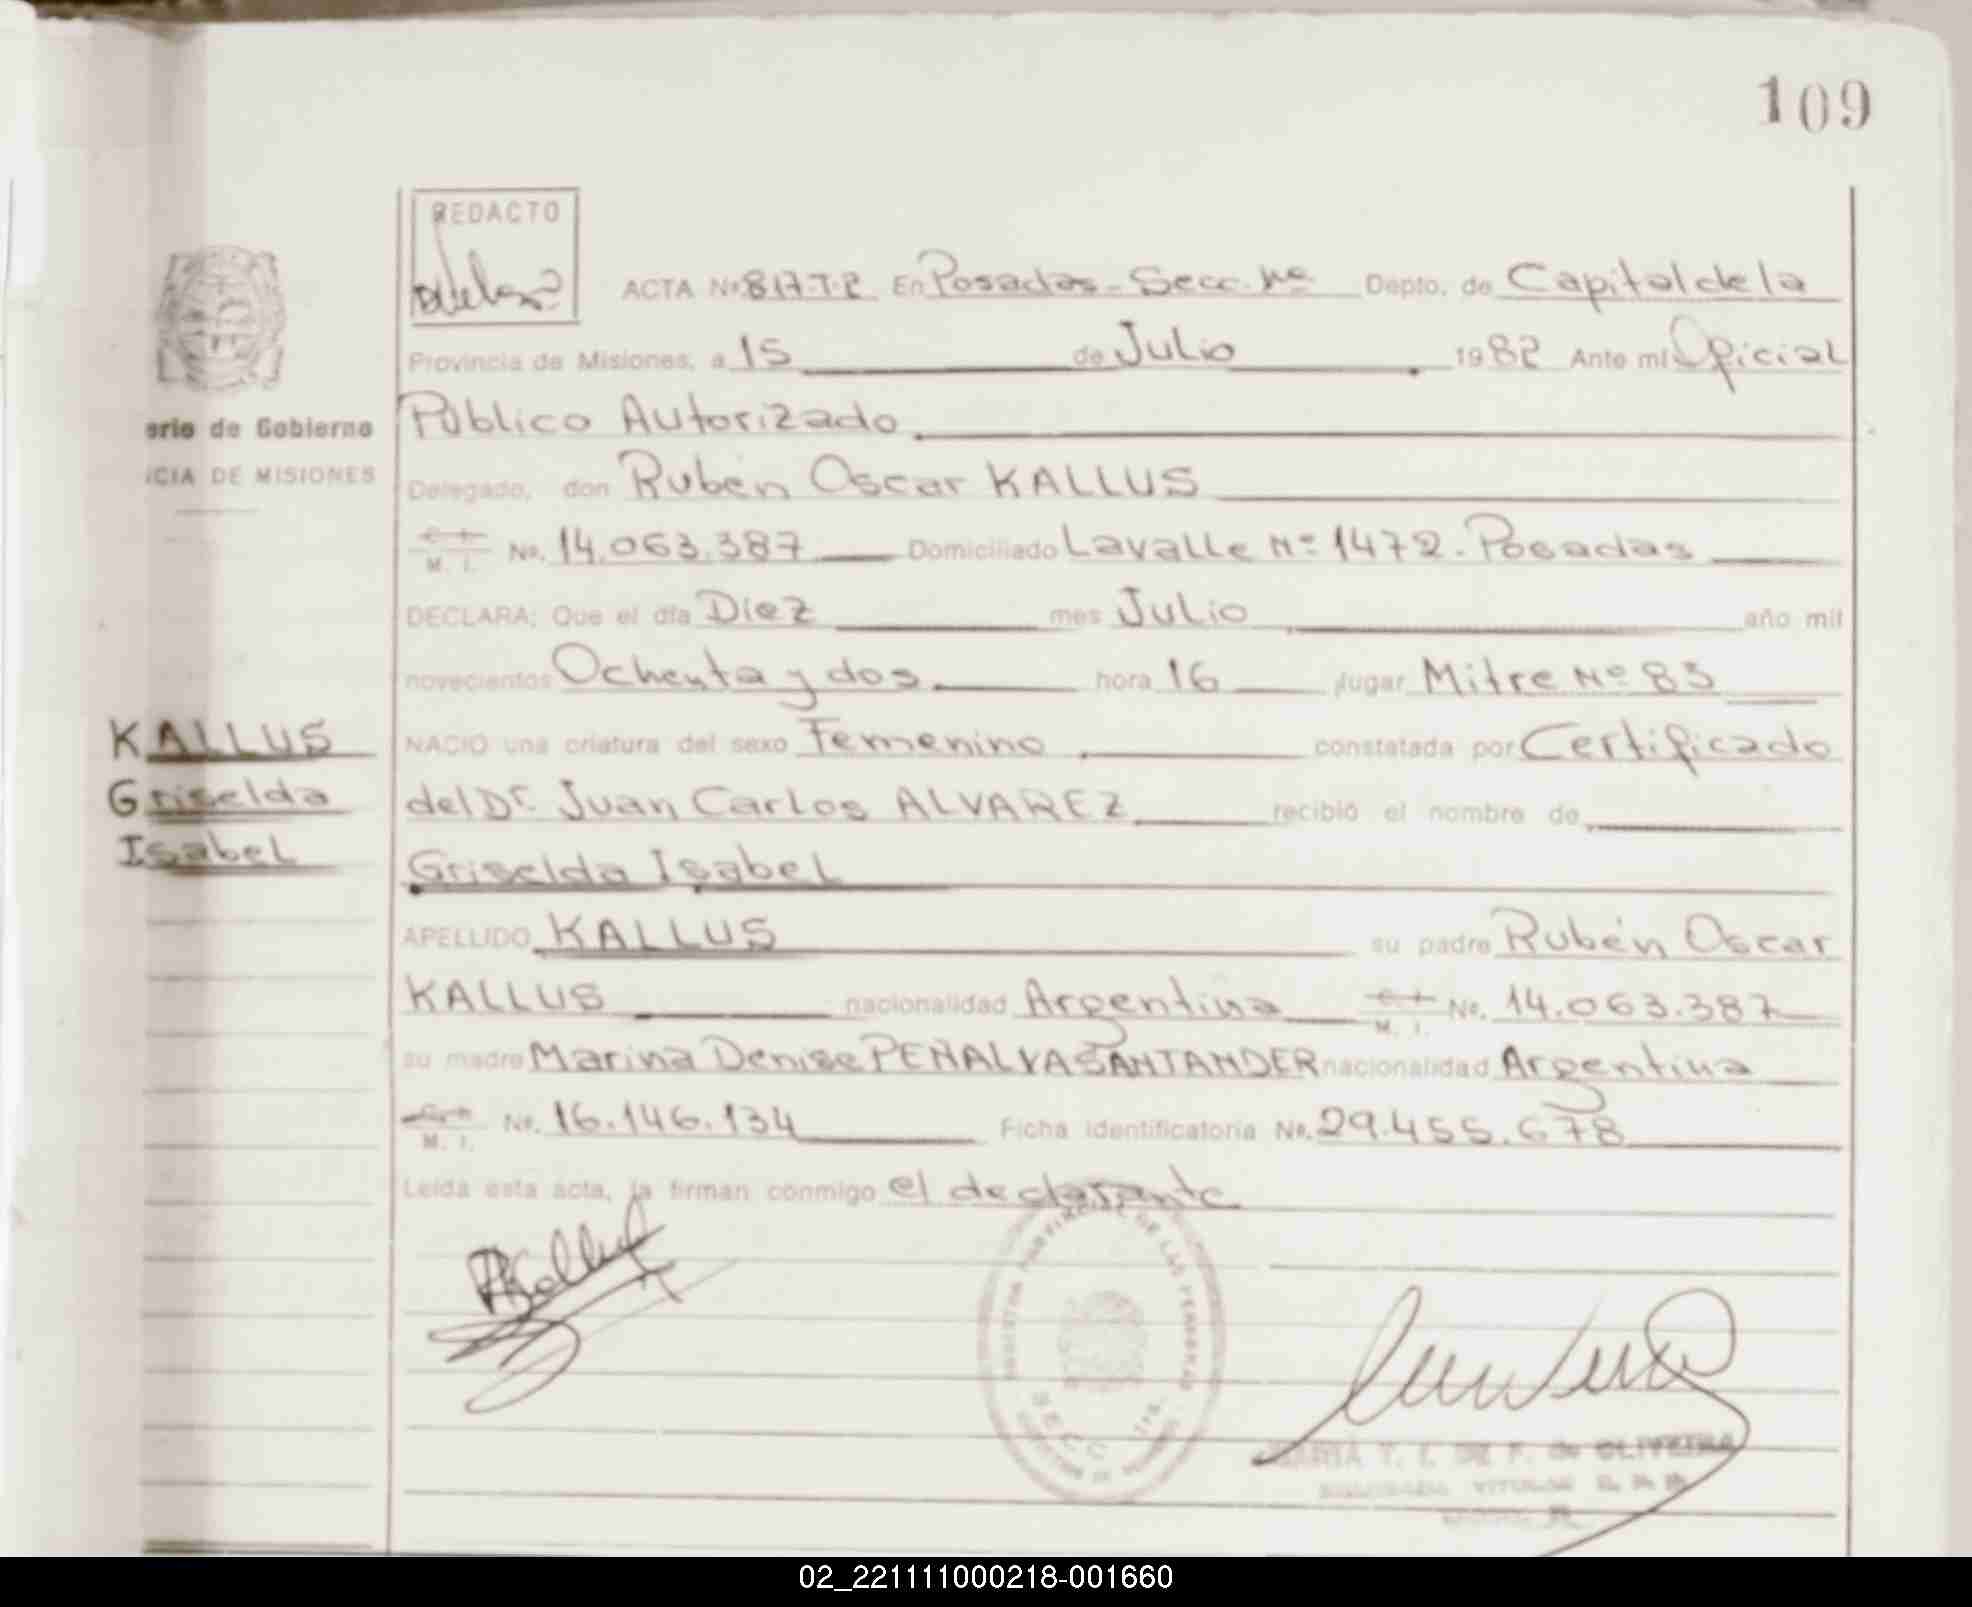 109
REDACTO
ACTA No 817-T-2 En Posadas - Secc. Depto. de Capital de la
Provincia de Misiones, a 15 de Julio 1982 Ante mí Oficial
Público Autorizado
erio de Gobierno
CIA DE MISIONES
Delegado, don Rubén Oscar KALLUS
M. I. No. 14.063.387 Domiciliado Lavalle Nº 1472. Posadas
DECLARA; Que el día Diez mes Julio año mil
novecientos Ochenta y dos hora 16 lugar Mitre Nº 83
KALLUS
Griselda
Isabel
NACIO una criatura del sexo Femenino constatada por Certificado
del Dr. Juan Carlos ALVAREZ recibió el nombre de
Griselda Isabel
APELLIDO KALLUS su padre Rubén Oscar
KALLUS nacionalidad Argentina C. I. M. I. No. 14.063.387
su madre Marina Denise PEÑALVA SANTANDER nacionalidad Argentina
M. I. No. 16.146.134 Ficha identificatoria No. 29.455.678
Leída esta acta, la firman conmigo el declarante
DE LAS PERSONAS
SECC
MARIA T. I. DE F. de OLIVEIRA
TITULAR
02_221111000218-001660